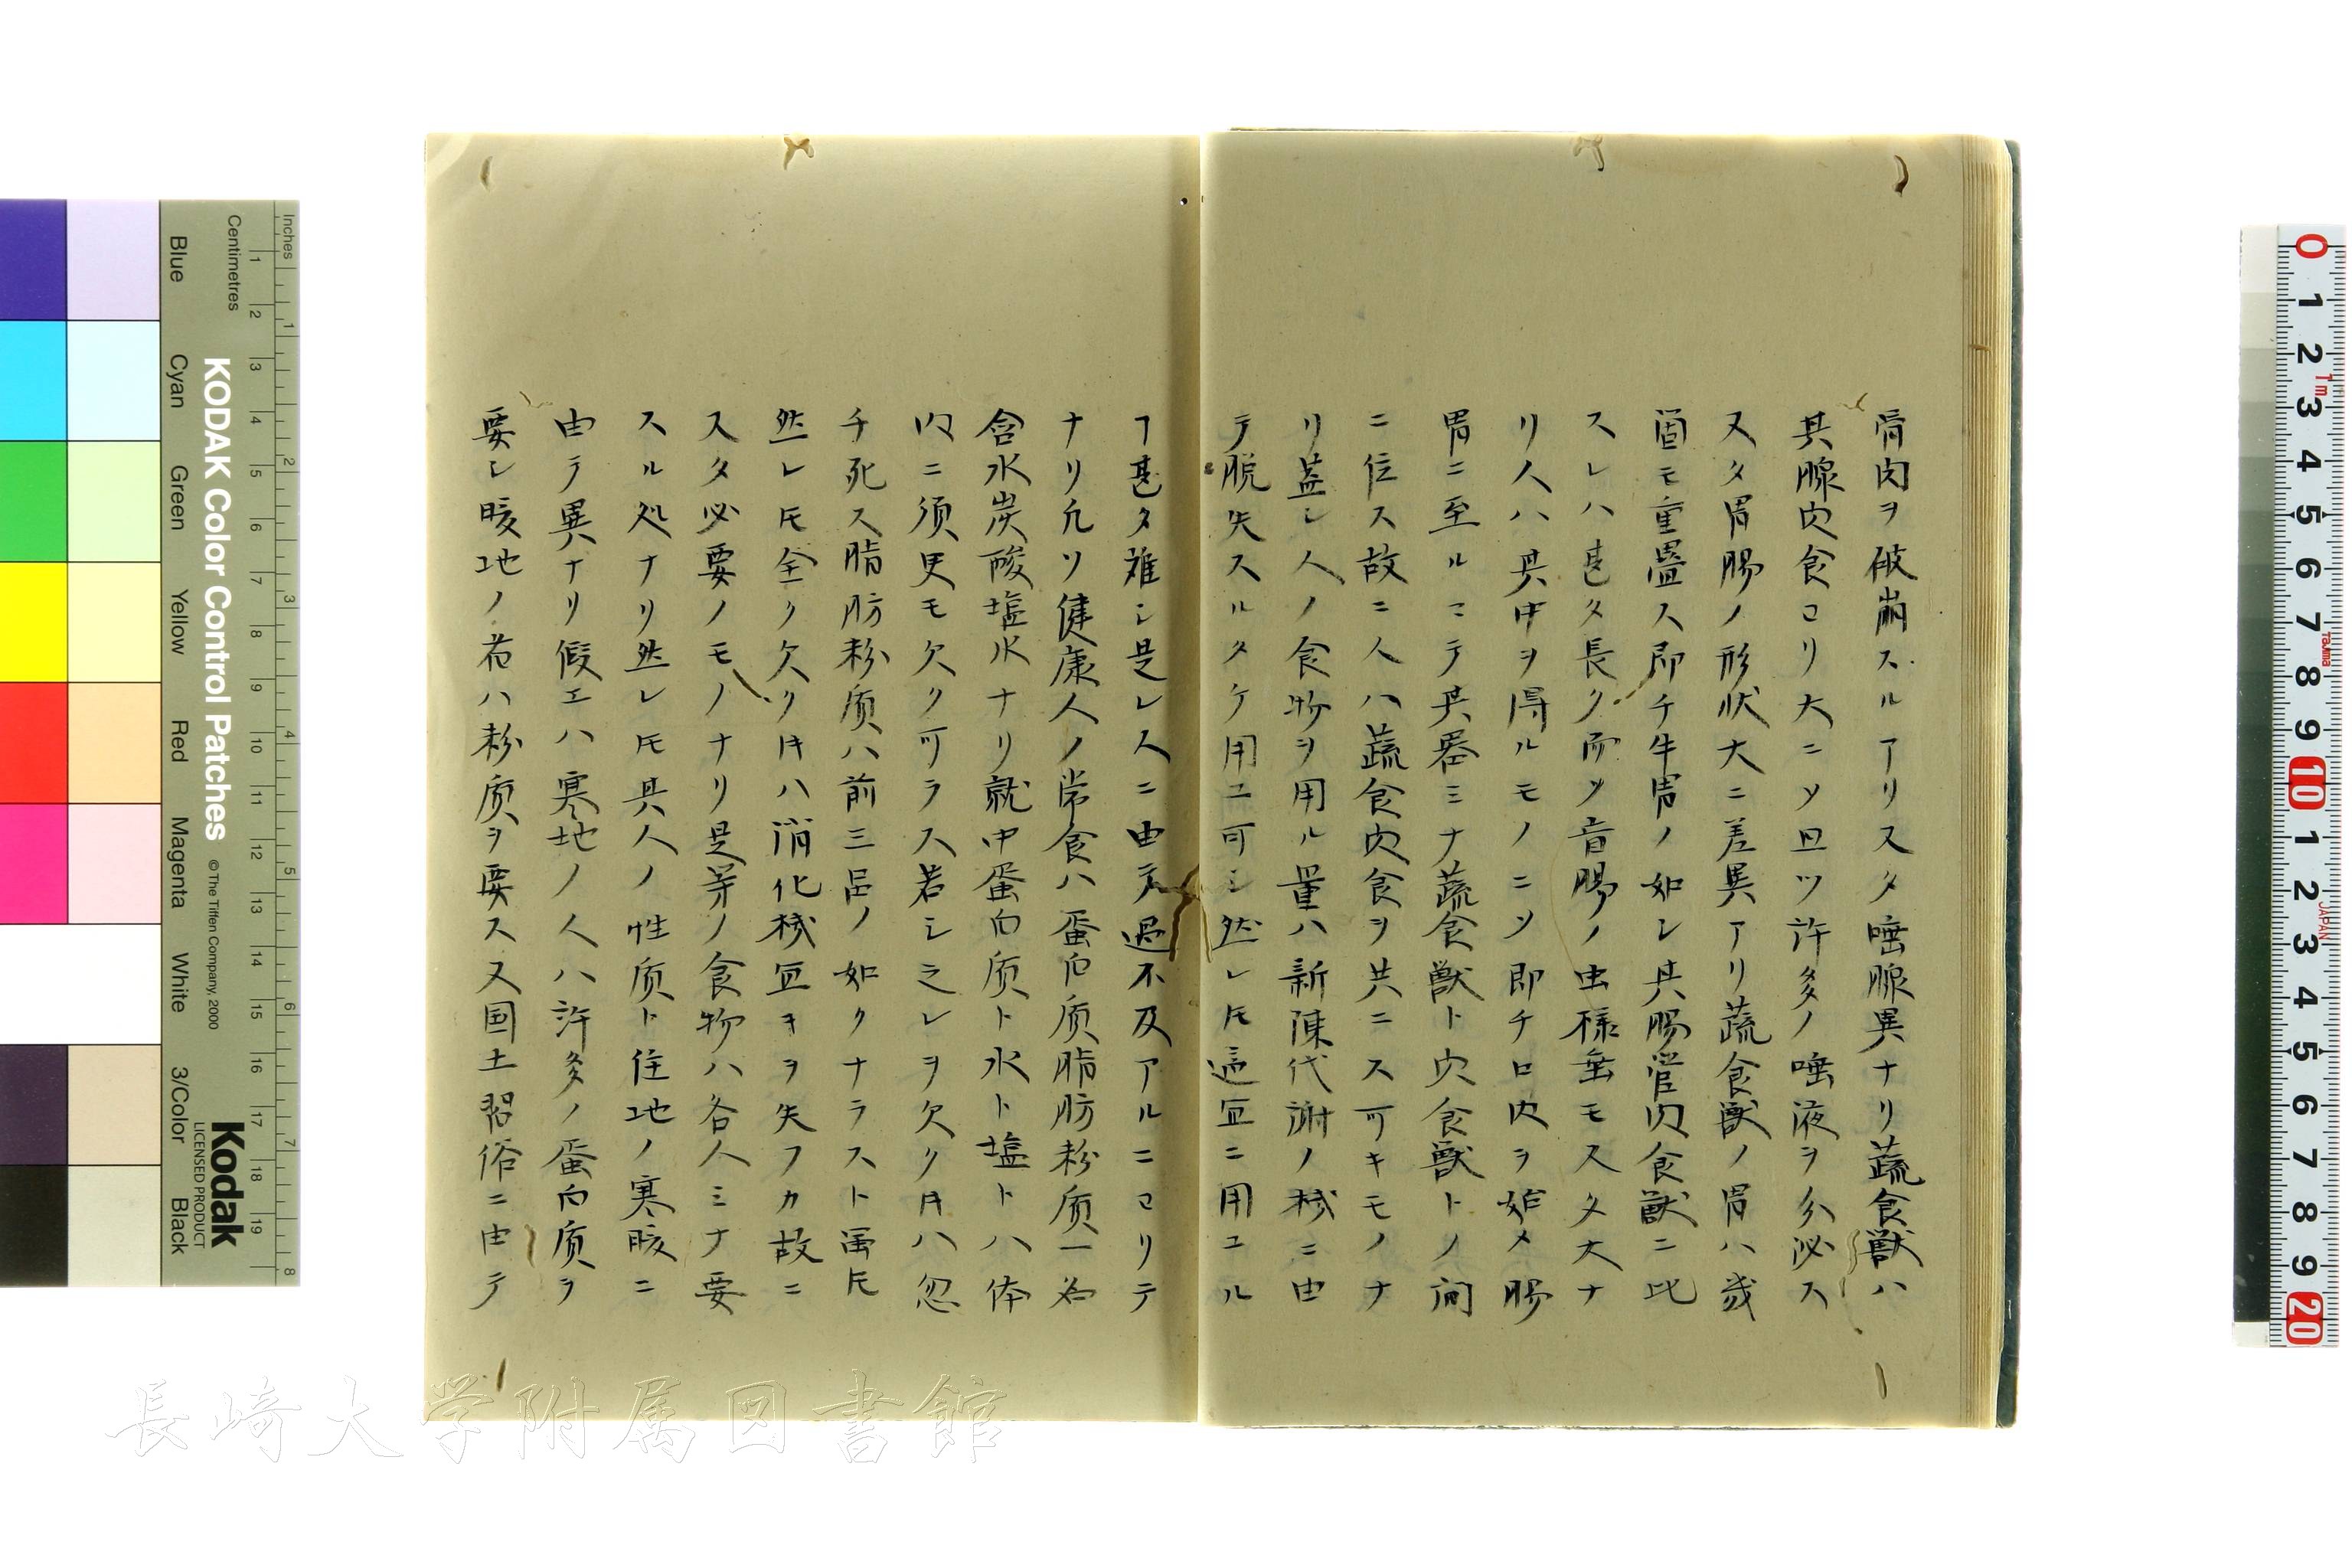 骨肉ヲ破崩スルアリ又タ唾腺異ナリ蔬食獣ハ
其腺肉食ヨリ大ニシ且ツ許多ノ唾液ヲ分泌ス
又タ胃腸ノ形状大ニ差異アリ蔬食獣ノ胃ハ幾
箇モ重畳ス即チ牛胃ノ如シ其腸管肉食獣ニ比
スレハ甚タ長ク而ツ盲腸ノ虫様垂モ又タ大ナ
リ人ハ其中ヲ得ルモノニソ即チ口内ヲ始メ腸
胃ニ至ルマテ其器ミナ蔬食獣ト肉食獣トノ間
ニ位ス故ニ人ハ蔬食肉食ヲ共ニス可キモノナ
リ蓋シ人ノ食物ヲ用ル量ハ新陳代謝ノ機ニ由
テ脱失スルタケ用ユ可シ然レ𪜈適宜ニ用ユル
ヿ甚タ難シ是レ人ニ由テ過不及アルニヨリテ
ナリ凡ソ健康人ノ常食ハ蛋白质脂肪粉质一名
含水炭酸塩水ナリ就中蛋白质ト水ト塩トハ体
内ニ須臾モ欠ク可ラス若シ之レヲ欠ク𪜈ハ忽
チ死ス脂肪粉质ハ前三品ノ如クナラスト虽𪜈
然レ𪜈全ク欠ク𪜈ハ消化機宜キヲ失フカ故ニ
又タ必要ノモノナリ是等ノ食物ハ各人ミナ要
スル処ナリ然レ𪜈其人ノ性质ト住地ノ寒暖ニ
由テ異ナリ假エハ寒地ノ人ハ許多ノ蛋白质ヲ
要シ暖地ノ者ハ粉质ヲ要ス又国土習俗ニ由テ
Inches
Centimetres
KODAK Color Control Patches
© The Tiffen Company, 2000
Kodak
LICENSED PRODUCT
Blue
Cyan
Green
Yellow
Red
Magenta
White
3/Color
Black
長崎大学附属図書館